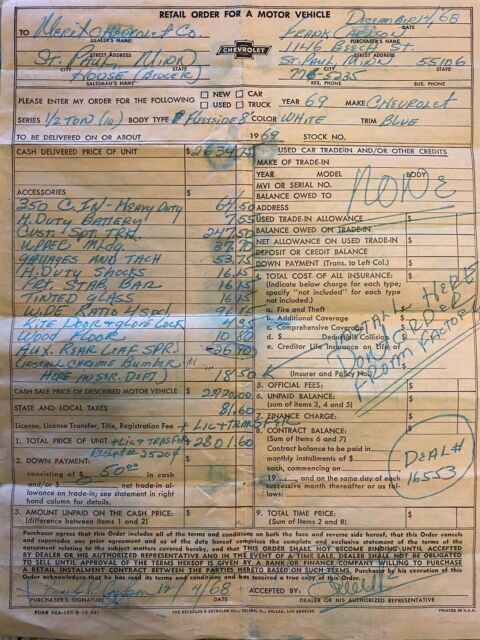 RETAIL ORDER FOR A MOTOR VEHICLE
December 4/68
TO Merit Chevrolet Co.
DEALER'S NAME
PURCHASER'S NAME
STREET ADDRESS
1146 Beech St.
STREET ADDRESS
CHEVROLET
St. Paul, Minn
CITY STATE
St. Paul Minn 55106
CITY STATE
House
SALESMAN'S NAME
776-5235
RES. PHONE BUS. PHONE
PLEASE ENTER MY ORDER FOR THE FOLLOWING
NEW CAR
USED TRUCK
YEAR 69 MAKE Chevrolet
SERIES 1/2 Ton (10) BODY TYPE Fleetside 8' COLOR White TRIM Blue
TO BE DELIVERED ON OR ABOUT 1969 STOCK NO.
CASH DELIVERED PRICE OF UNIT $ 2634.75
ACCESSORIES
350 C.IN - Heavy Duty 64.50
H. Duty Battery 7.55
Cust. Spt. Trk 247.50
Upper Mldg. 37.70
Gauages and Tach 53.75
H. Duty Shocks 16.15
Frt. Stab. Bar 16.15
Tinted Glass 16.15
Wide Ratio 4 Spd.
Door & Glove Lock
Wood Floor
Aux. Rear Leaf Spr.
(Install Chrome Bumper
Here in Ser. Dept) 18.50
CASH SALE PRICE OF DESCRIBED MOTOR VEHICLE $ 2720.00
STATE AND LOCAL TAXES 81.60
License, License Transfer, Title, Registration Fee + Lic + Transfer
1. TOTAL PRICE OF UNIT + Lic + Transfer $ 2801.60
Receipt # 35204
2. DOWN PAYMENT:
consisting of $ 50.00 in cash
and/or $ net trade-in al-
lowance on trade-in; see statement in right
hand column for details.
3. AMOUNT UNPAID ON THE CASH PRICE: $
(difference between items 1 and 2)
USED CAR TRADE-IN AND/OR OTHER CREDITS
MAKE OF TRADE-IN
YEAR MODEL BODY
MVI OR SERIAL NO.
BALANCE OWED TO
ADDRESS
None
USED TRADE-IN ALLOWANCE $
BALANCE OWED ON TRADE-IN $
NET ALLOWANCE ON USED TRADE-IN $
DEPOSIT OR CREDIT BALANCE $
DOWN PAYMENT (Trans. to Left Col.) $
4. TOTAL COST OF ALL INSURANCE: $
(Indicate below charge for each type;
specify "not included" for each type
not included.)
a. Fire and Theft $
b. Additional Coverage $
c. Comprehensive Coverage $
d. $ Deductible Collision $
e. Creditor Life Insurance on Life of
(Insurer and Policy No.)
Install Here
Don't Order
From Factory
5. OFFICIAL FEES: $
6. UNPAID BALANCE: $
(sum of items 3, 4 and 5)
7. FINANCE CHARGE: $
8. CONTRACT BALANCE: $
(Sum of items 6 and 7)
Contract balance to be paid in
monthly installments of $
each, commencing on
19 , and on the same day of each
successive month thereafter or as fol-
lows:
Deal #
16553
9. TOTAL TIME PRICE: $
(Sum of items 2 and 8)
Purchaser agrees that this Order includes all of the terms and conditions on both the face and reverse side hereof, that this Order cancels
and supersedes any prior agreement and as of the date hereof comprises the complete and exclusive statement of the terms of the
agreement relating to the subject matters covered hereby, and that THIS ORDER SHALL NOT BECOME BINDING UNTIL ACCEPTED
BY DEALER OR HIS AUTHORIZED REPRESENTATIVE AND IN THE EVENT OF A TIME SALE, DEALER SHALL NOT BE OBLIGATED
TO SELL UNTIL APPROVAL OF THE TERMS HEREOF IS GIVEN BY A BANK OR FINANCE COMPANY WILLING TO PURCHASE
A RETAIL INSTALMENT CONTRACT BETWEEN THE PARTIES HERETO BASED ON SUCH TERMS. Purchaser by his execution of this
Order acknowledges that he has read its terms and conditions and has received a true copy of this Order.
12/4/68
PURCHASER'S SIGNATURE DATE
ACCEPTED BY:
DEALER OR HIS AUTHORIZED REPRESENTATIVE
PRINTED IN U.S.A.